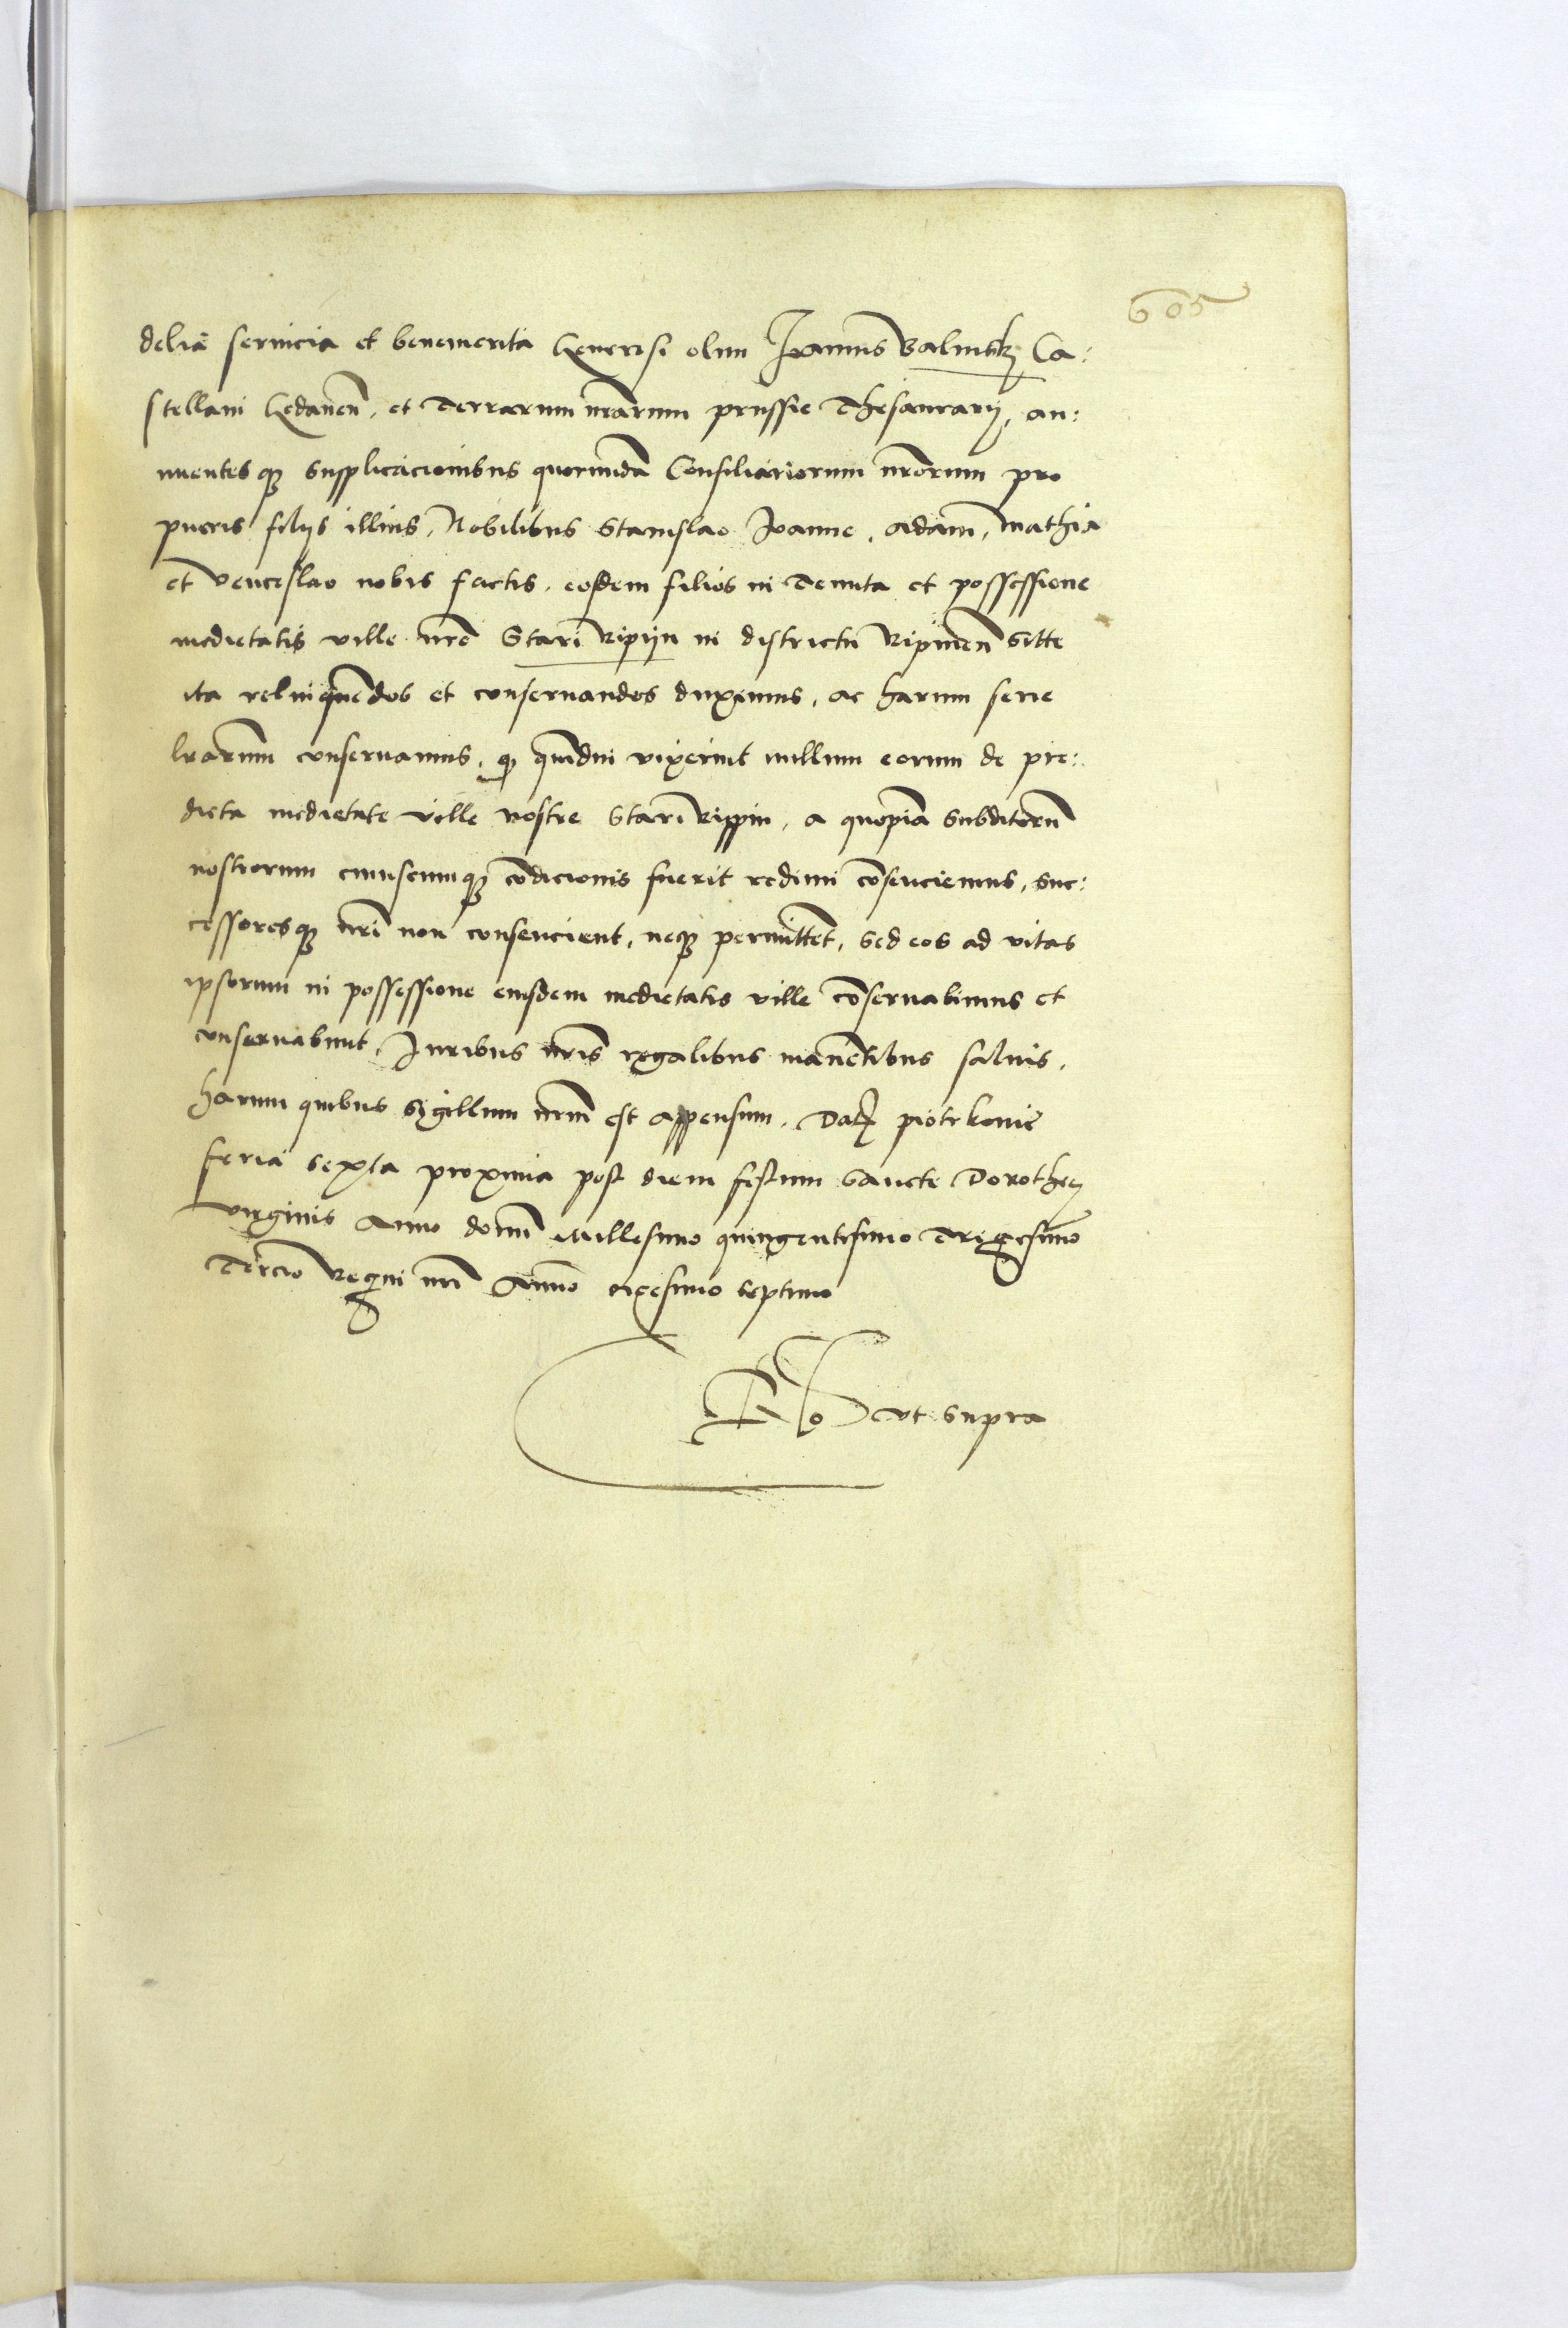 605
delia seruicia et benemerita Generosi olim Joannis Balinskj Ca:
stellani Gedanen̄, et Terrarum nr̄arum prussie Thesaurarij, an:
nuentesq; supplicacionibus quorundā Consiliariorum nr̄orum pro
pueris filijs illius, Nobilibus Stanislao Joanne, Adam, Mathia
et Venceslao nobis factis, eosdem filios in Tenuta et possessione
medietatis ville nr̄e Stari Ripijn in districtu Ripinen̄ sitte
ita relinquēdos et conseruandos duximus, ac harum serie
lr̄arum conseruamus, q; quādiu vixerint nullum eorum de pre:
dicta medietate ville nostre Stari Rippin, a quopiā subditorū
nostrorum cuiuscumq; cōdicionis fuerit redimi cōsenciemus, suc:
cessoresq; nr̄i non consencient, neq; permittēt, sed eos ad vitas
ipsorum in possessione eiusdem medietatis ville cōseruabimus et
conseruabunt, Juribus nr̄is regalibus manētibus saluis,
harum quibus sigillum nr̄m est appensum, Dat̄ piotrkouie
feria sexta proxima post diem festum sancte Dorothee
virginis Anno domī Millesimo quingentesimo Trigesimo
Tercio Regni nr̄i Anno vigesimo septimo
ut supra